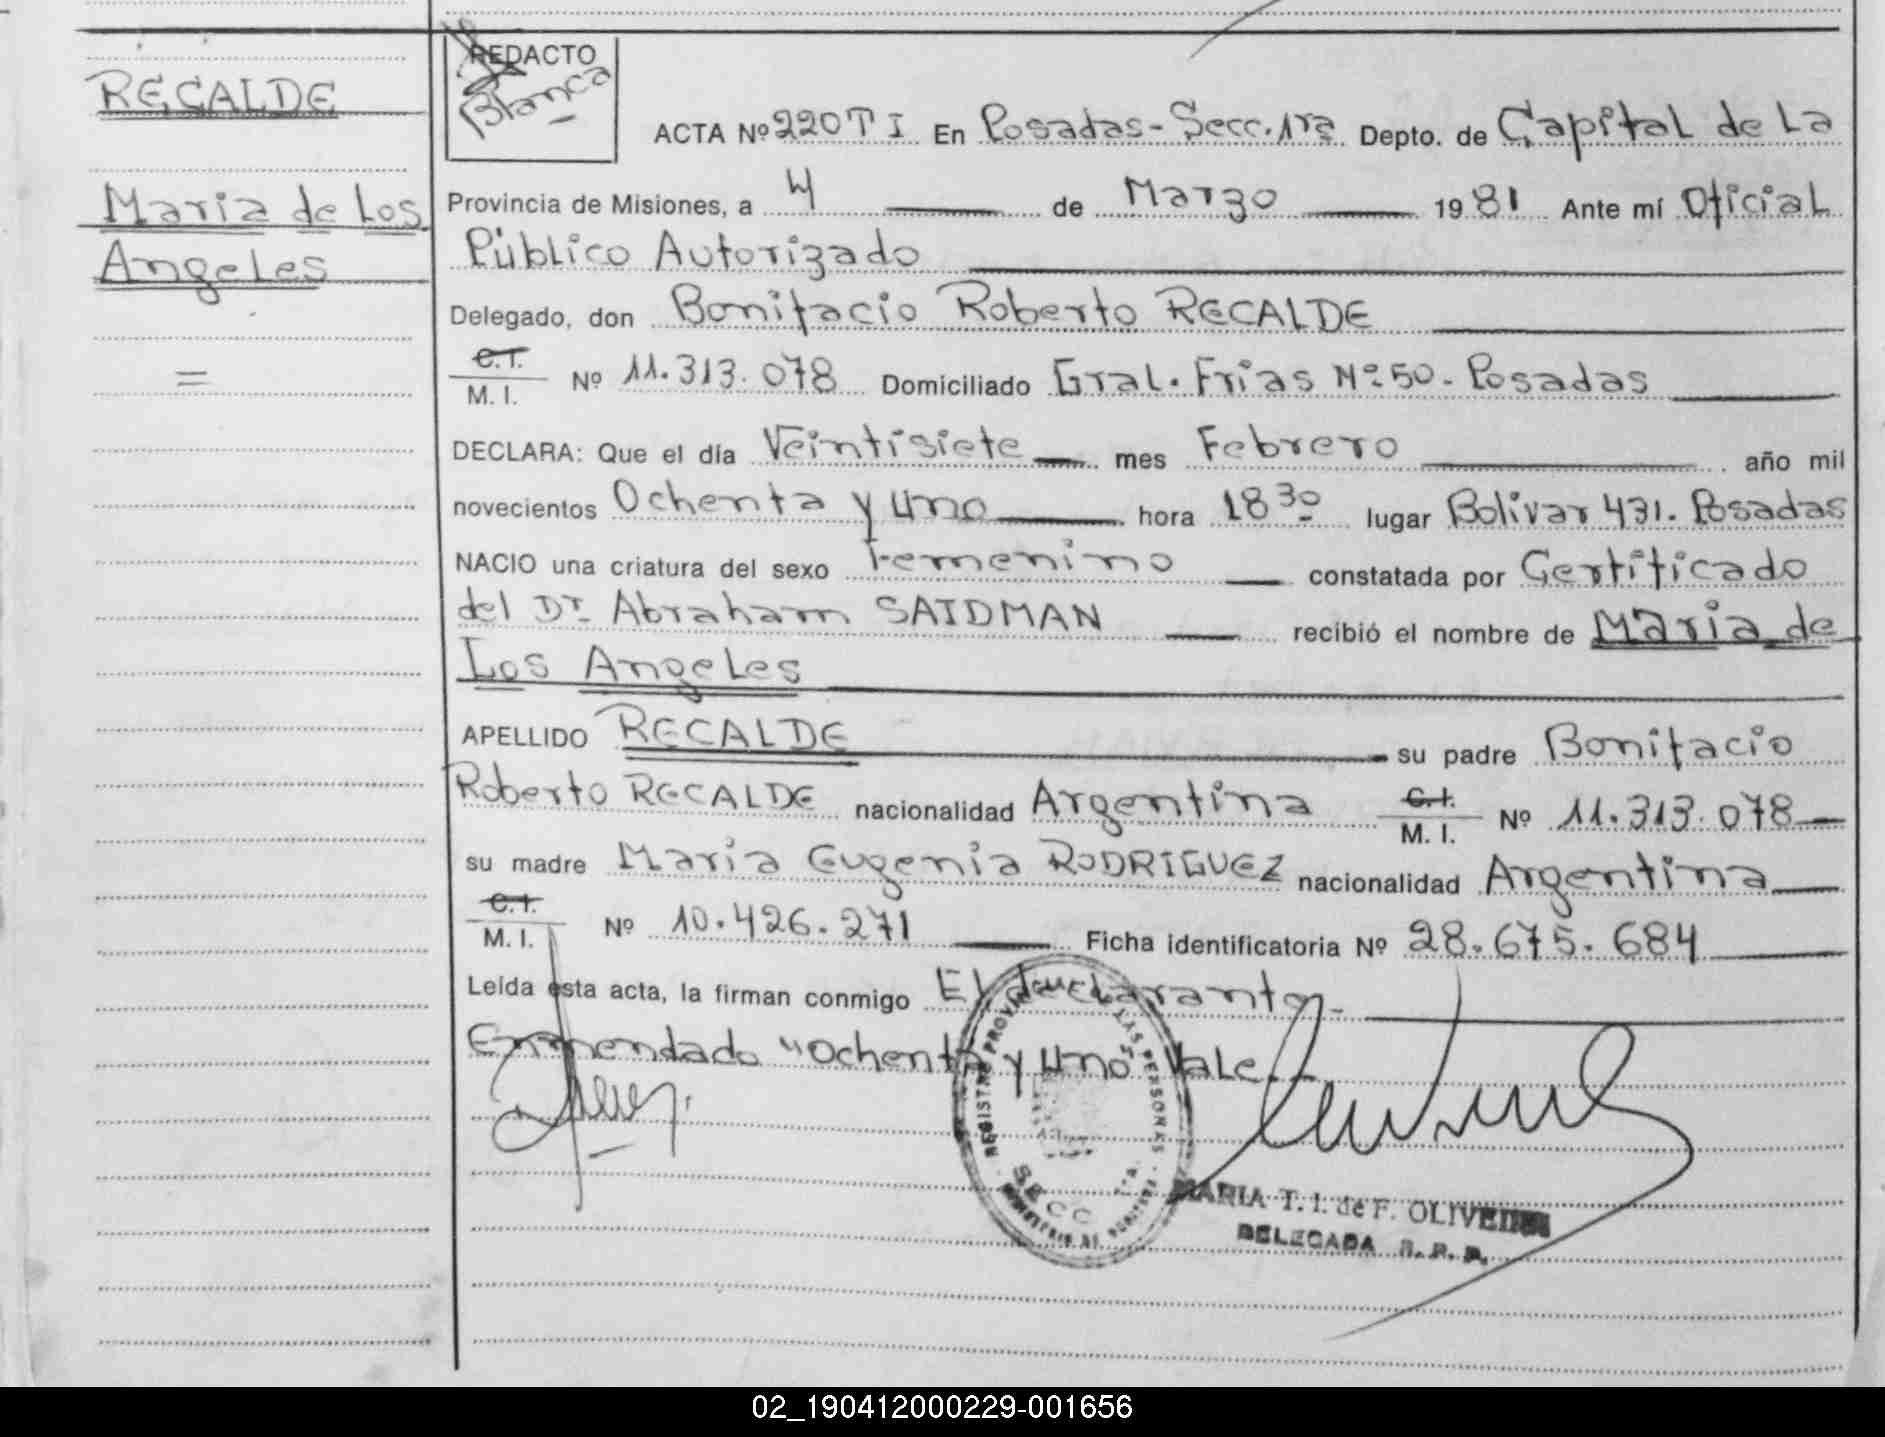 RECALDE
Maria de Los
Angeles
=
REDACTO
Blanca
ACTA Nº 220 T I En Posadas-Secc. 1ra Depto. de Capital de La
Provincia de Misiones, a 4 de Marzo 1981 Ante mí Oficial
Público Autorizado
Delegado, don Bonifacio Roberto RECALDE
C.I.
M. I. Nº 11.313.078 Domiciliado Gral. Frias Nº 50. Posadas
DECLARA: Que el día Veintisiete mes Febrero año mil
novecientos Ochenta y uno hora 18 30 lugar Bolivar 431. Posadas
NACIO una criatura del sexo Femenino constatada por Certificado
del Dr. Abraham SAIDMAN recibió el nombre de Maria de
Los Angeles
APELLIDO RECALDE su padre Bonifacio
Roberto RECALDE nacionalidad Argentina C.I. M. I. Nº 11.313.078
su madre Maria Eugenia RODRIGUEZ nacionalidad Argentina
C.I.
M. I. Nº 10.426.271 Ficha identificatoria Nº 28.675.684
Leída esta acta, la firman conmigo El declarante
Enmendado "Ochenta y uno Vale
REGISTRO PROVINCIAL DE LAS PERSONAS
SECC 1ra.
MARIA T. I. de F. OLIVEIRA
DELEGADA R. P. P.
02_190412000229-001656